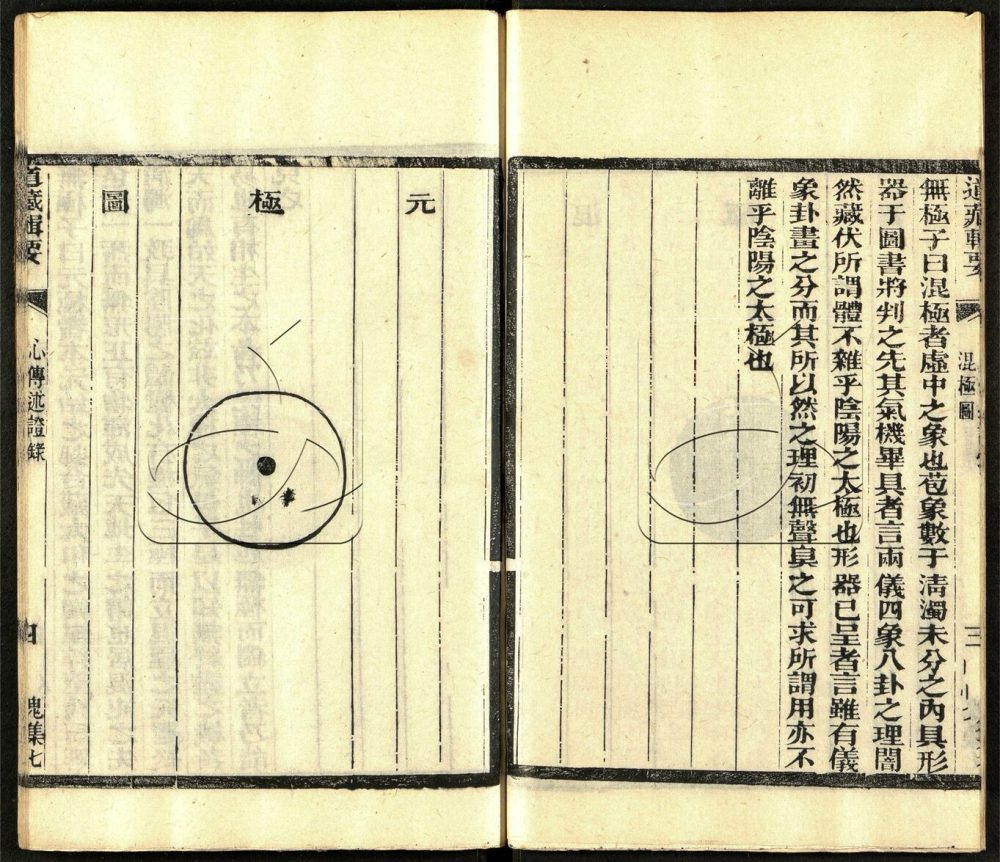 道藏輯要
混極圖
三
無極子曰混極者虛中之象也苞象數于清濁未分之內具形
器于圖書將判之先其氣機畢具者言兩儀四象八卦之理闇
然藏伏所謂體不雜乎陰陽之太極也形器已呈者言雖有儀
象卦畫之分而其所以然之理初無聲臭之可求所謂用亦不
離乎陰陽之太極也
元極圖
道藏輯要
心傳述證錄
四
鬼集七